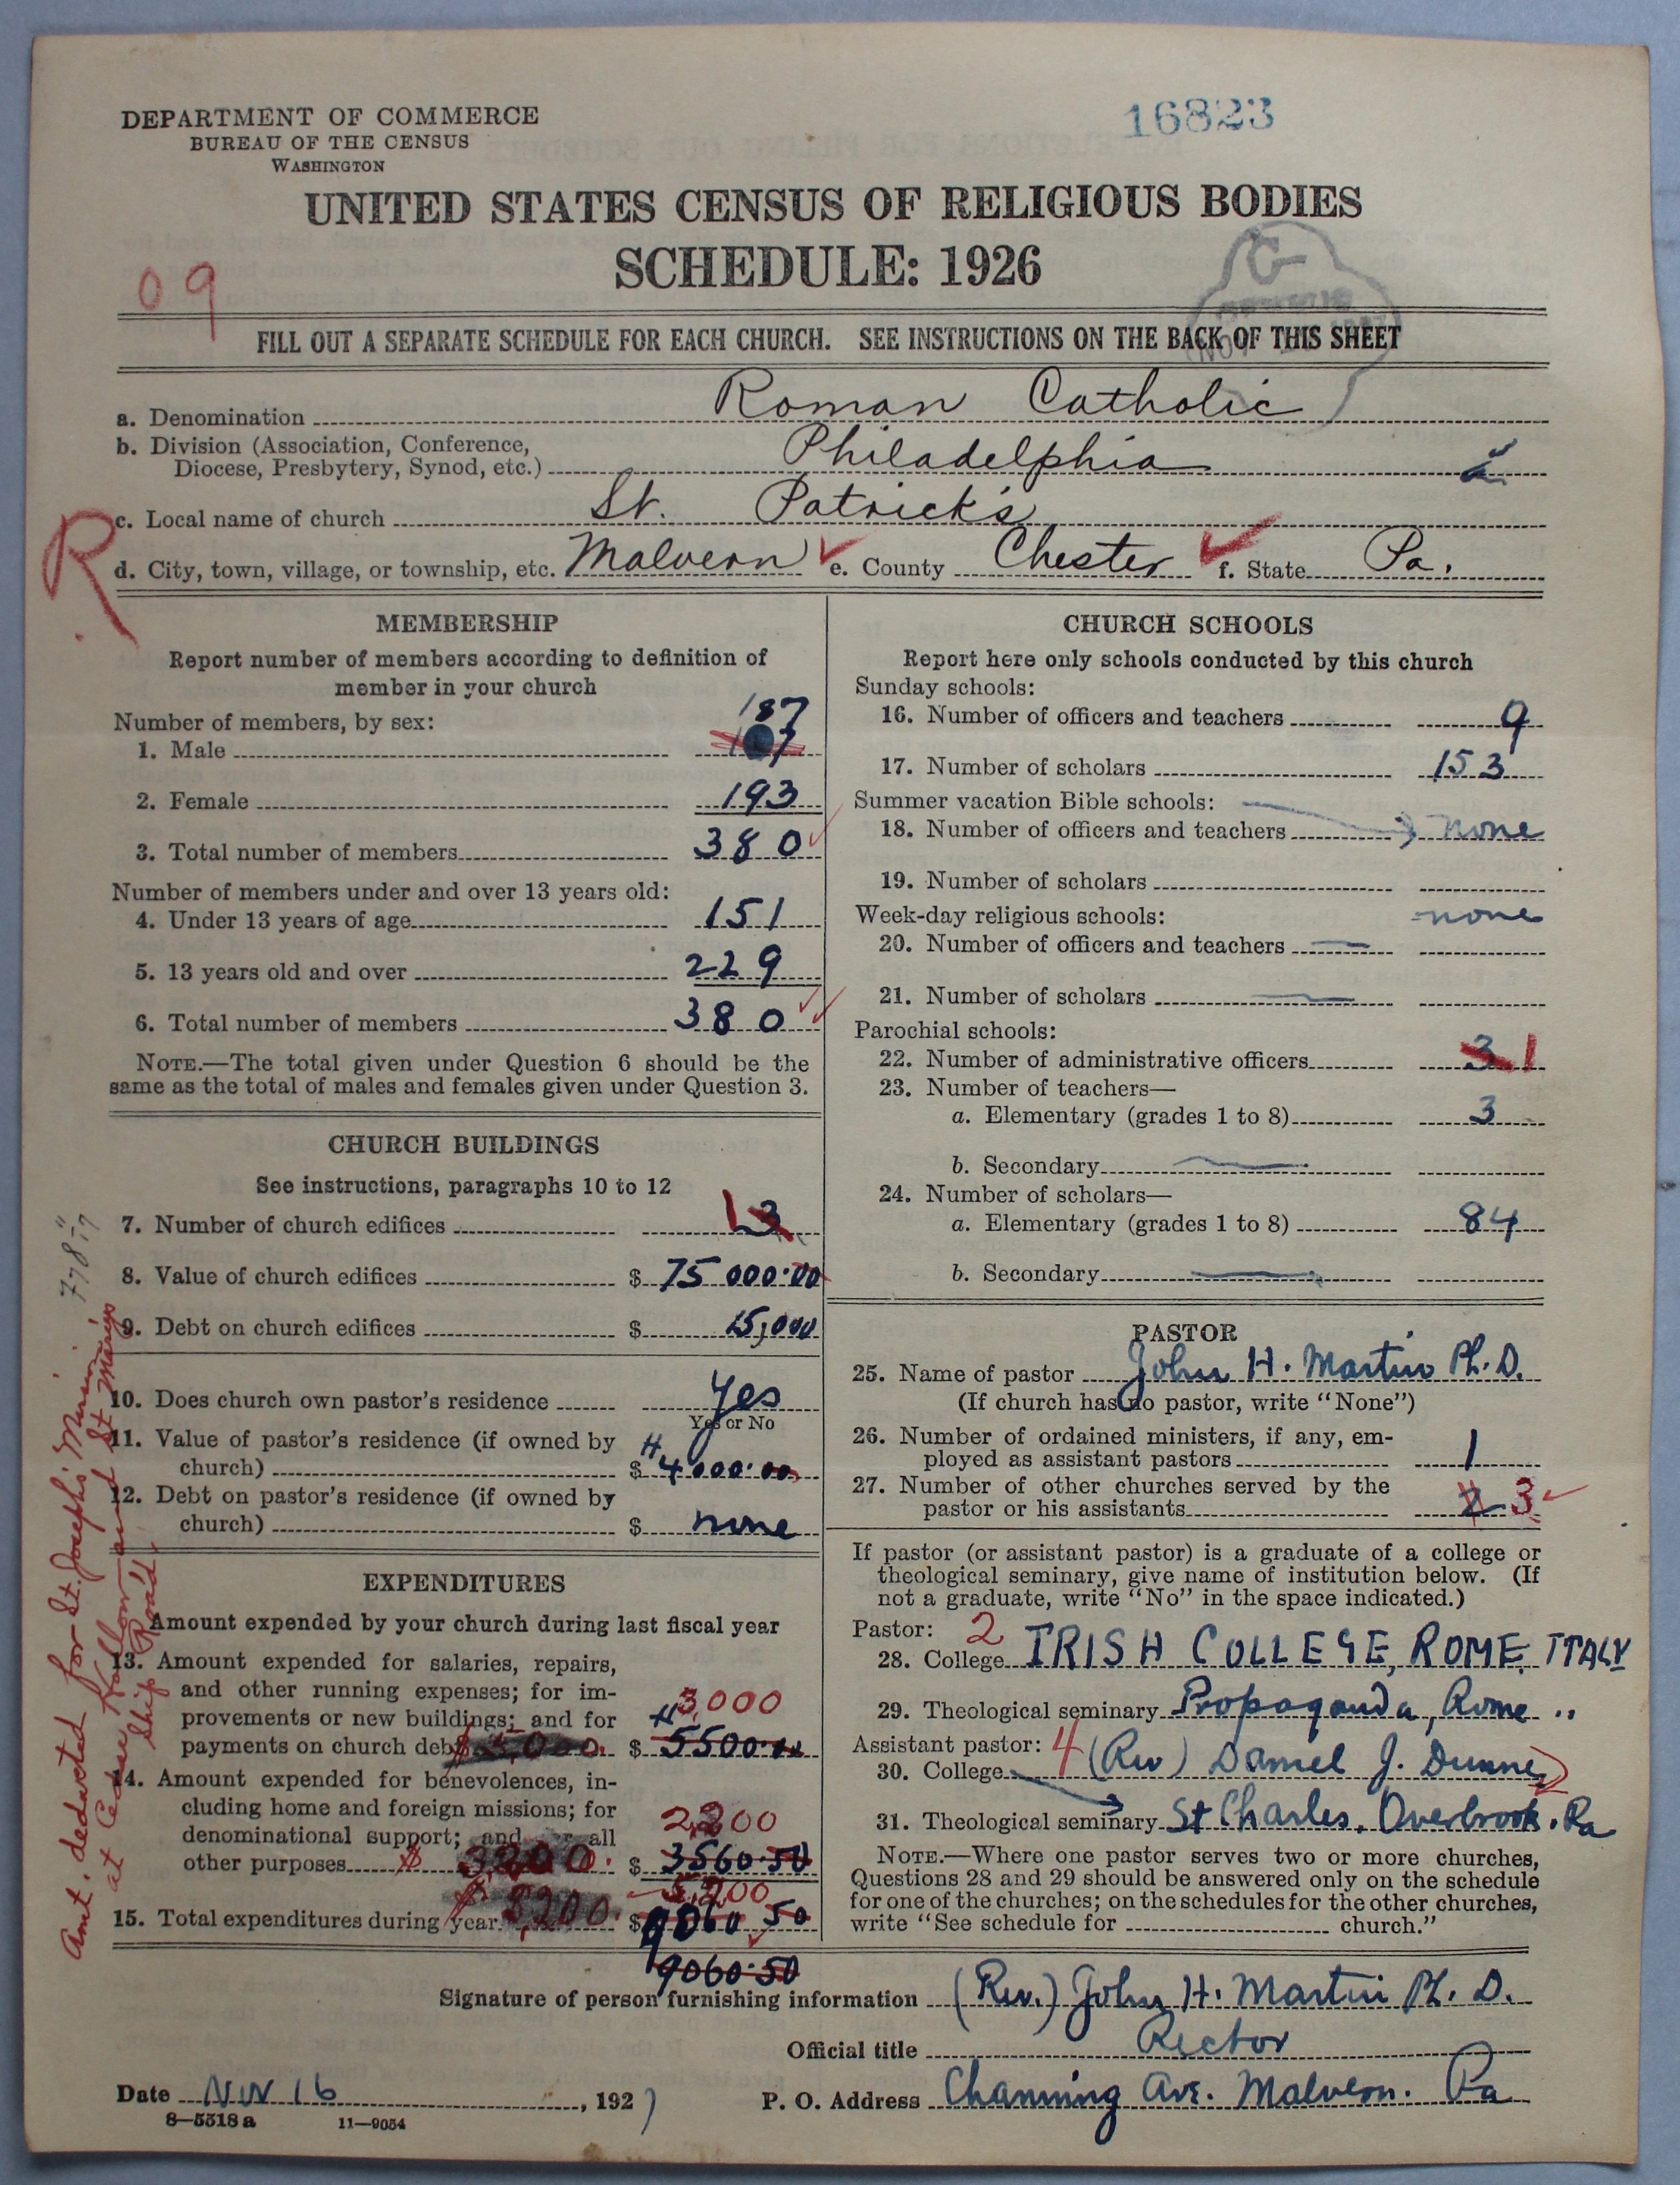 DEPARTMENT OF COMMERCE
BUREAU OF THE CENSUS
WASHINGTON
16823
UNITED STATES CENSUS OF RELIGIOUS BODIES
SCHEDULE: 1926
09
FILL OUT A SEPARATE SCHEDULE FOR EACH CHURCH. SEE INSTRUCTIONS ON THE BACK OF THIS SHEET
a. Denomination Roman Catholic
b. Division (Association, Conference,
Diocese, Presbytery, Synod, etc.) Philadelphia
R
c. Local name of church St. Patrick's
d. City, town, village, or township, etc. Malvern e. County Chester f. State Pa.
MEMBERSHIP
Report number of members according to definition of
member in your church
Number of members, by sex:
187
1. Male
2. Female 193
3. Total number of members 380
Number of members under and over 13 years old:
4. Under 13 years of age 151
5. 13 years old and over 229
6. Total number of members 380
NOTE.—The total given under Question 6 should be the
same as the total of males and females given under Question 3.
CHURCH BUILDINGS
See instructions, paragraphs 10 to 12
7. Number of church edifices 1 3
8. Value of church edifices $ 75 000.00
9. Debt on church edifices $ 15,000
10. Does church own pastor's residence Yes
Yes or No
11. Value of pastor's residence (if owned by
church) $ 4000.00
12. Debt on pastor's residence (if owned by
church) $ none
EXPENDITURES
Amount expended by your church during last fiscal year
13. Amount expended for salaries, repairs,
and other running expenses; for im-
provements or new buildings; and for 3,000
payments on church debt $ 5500.00
14. Amount expended for benevolences, in-
cluding home and foreign missions; for 2,200
denominational support; and for all
other purposes $ 3200. $ 3560.50
5,200
15. Total expenditures during year $ 9060 50
9060.50
Amt. deducted for St. Joseph's Mission
at Cedar Hollow and St Mary's
Ship Road.
CHURCH SCHOOLS
Report here only schools conducted by this church
Sunday schools:
16. Number of officers and teachers 9
17. Number of scholars 153
Summer vacation Bible schools:
18. Number of officers and teachers none
19. Number of scholars
Week-day religious schools: none
20. Number of officers and teachers
21. Number of scholars
Parochial schools:
22. Number of administrative officers 3 1
23. Number of teachers—
a. Elementary (grades 1 to 8) 3
b. Secondary
24. Number of scholars—
a. Elementary (grades 1 to 8) 84
b. Secondary
PASTOR
25. Name of pastor John H. Martin Ph. D.
(If church has no pastor, write "None")
26. Number of ordained ministers, if any, em-
ployed as assistant pastors 1
27. Number of other churches served by the
pastor or his assistants 2 3
If pastor (or assistant pastor) is a graduate of a college or
theological seminary, give name of institution below. (If
not a graduate, write "No" in the space indicated.)
Pastor: 2
28. College IRISH COLLEGE, ROME. ITALY
29. Theological seminary Propaganda, Rome "
Assistant pastor: 4
30. College (Rev) Daniel J. Dunne
31. Theological seminary St Charles, Overbrook. Pa
NOTE.—Where one pastor serves two or more churches,
Questions 28 and 29 should be answered only on the schedule
for one of the churches; on the schedules for the other churches,
write "See schedule for church."
Signature of person furnishing information (Rev.) John H. Martin Ph. D.
Official title Rector
Date Nov 16, 1927 P. O. Address Channing Ave. Malvern. Pa
8—5518 a 11—9054